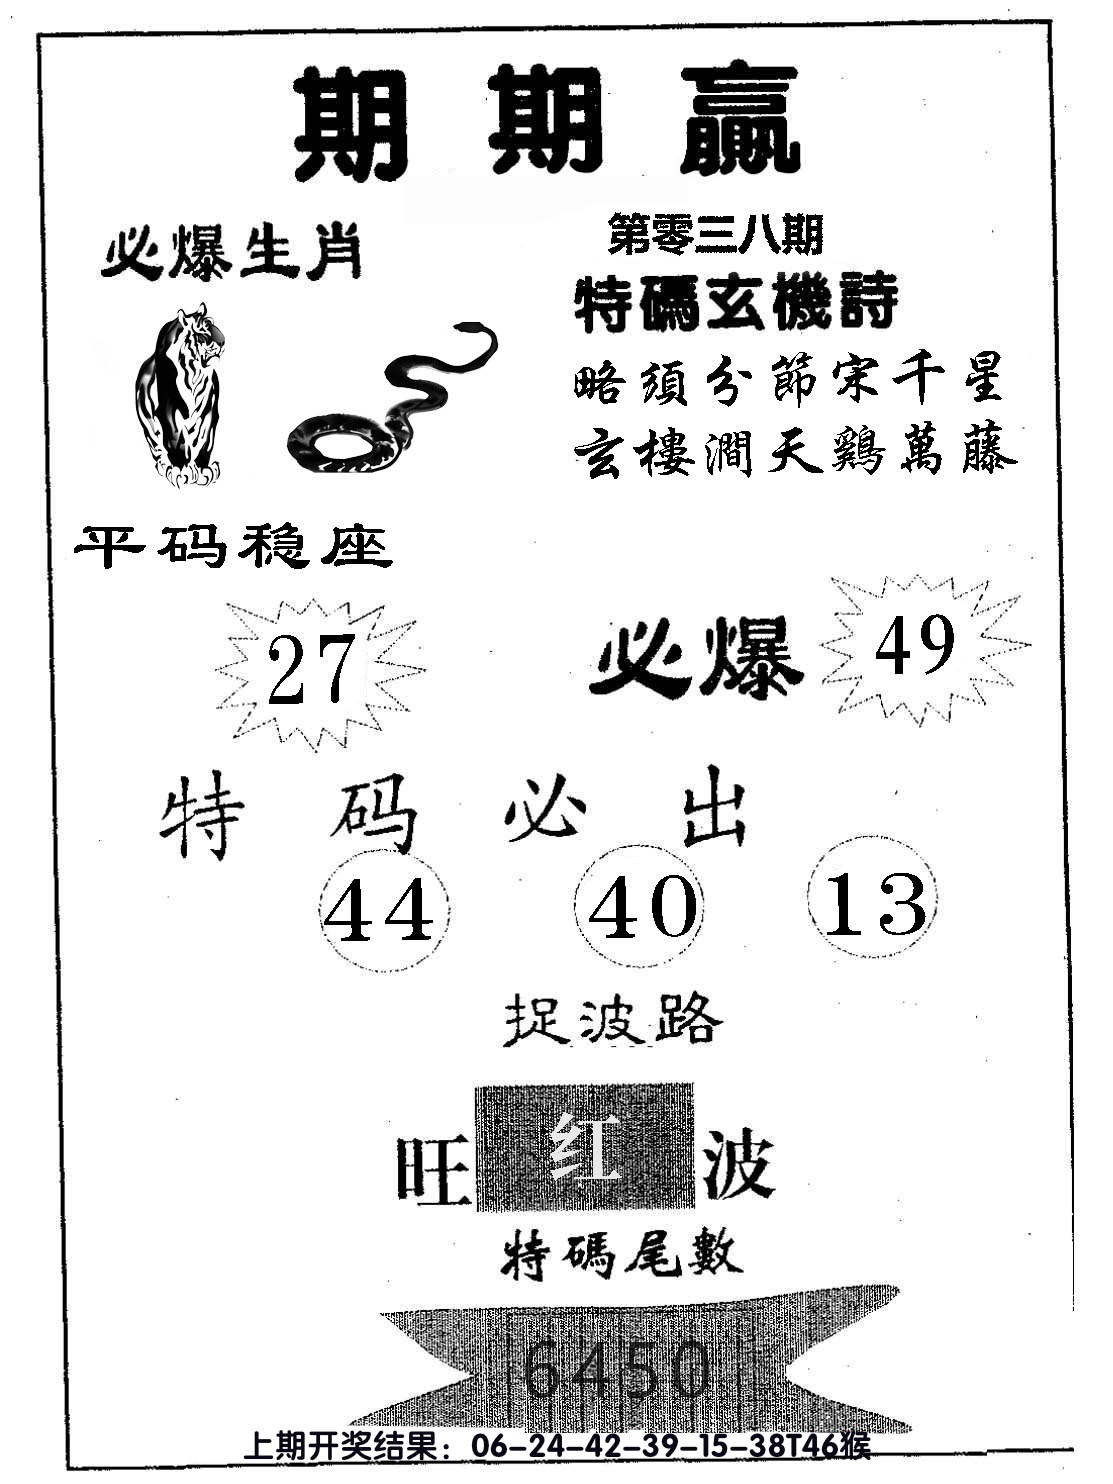 期期赢
必爆生肖
第零三八期
特碼玄機詩
略須分節宋千星
玄樓澗天鷄萬藤
平码稳座
27
必爆
49
特码必出
44 40 13
捉波路
旺红波
特碼尾數
6450
上期开奖结果：06-24-42-39-15-38T46猴